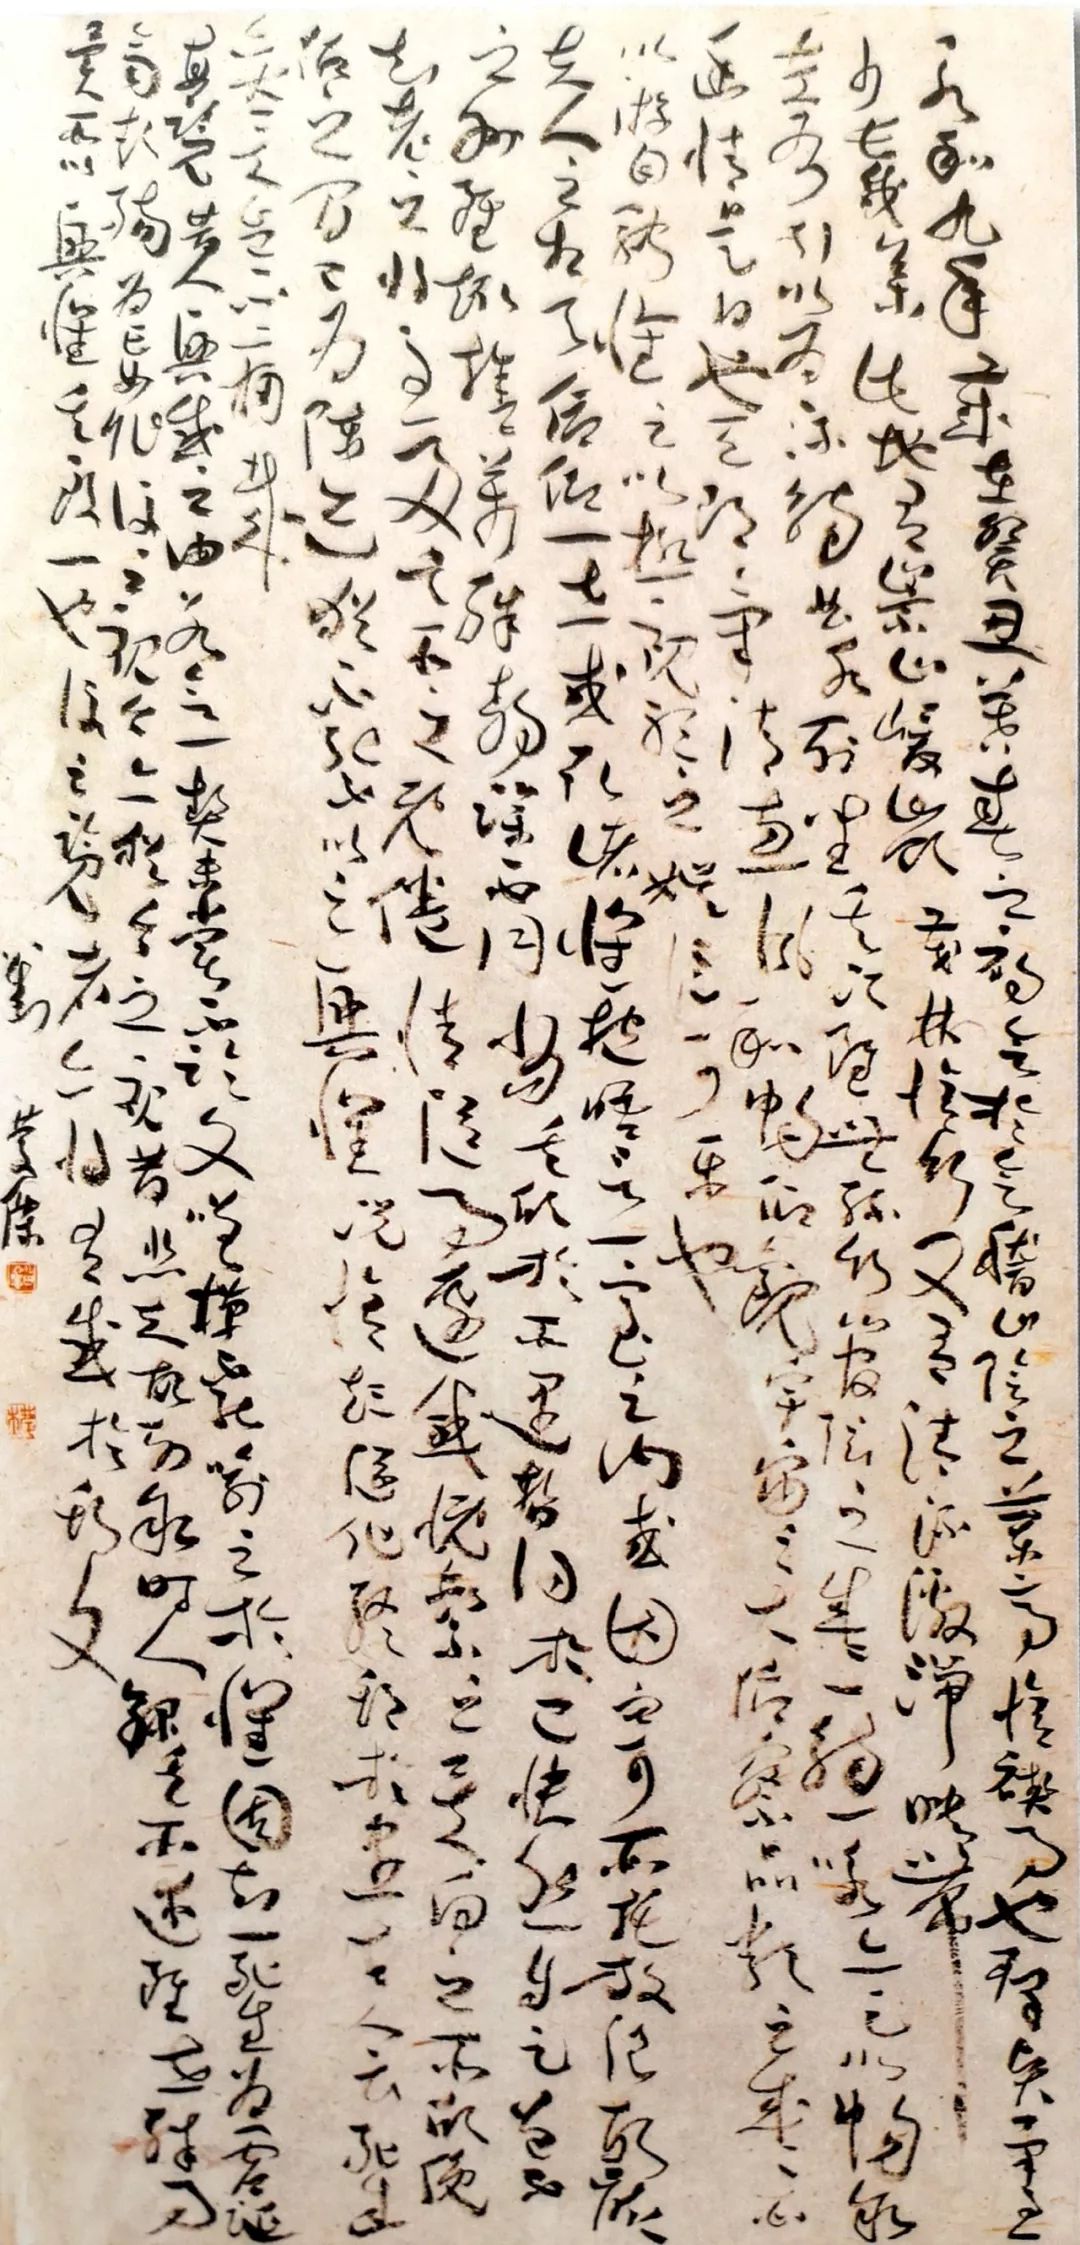 永和九年歲在癸丑暮春之初會於會稽山陰之蘭亭脩禊事也群賢畢至
少長咸集此地有崇山峻嶺茂林脩竹又有清流激湍映帶
左右引以為流觴曲水列坐其次雖無絲竹管弦之盛一觴一詠亦足以暢敘
幽情是日也天朗氣清惠風和暢仰觀宇宙之大俯察品類之盛所
以游目騁懷足以極視聽之娛信可樂也
夫人之相與俯仰一世或取諸懷抱悟言一室之內或因寄所託放浪形骸
之外雖趣捨萬殊靜躁不同當其欣於所遇暫得於己快然自足曾不
知老之將至及其所之既倦情隨事遷感慨繫之矣向之所欣俛
仰之間已為陳迹猶不能不以之興懷況脩短隨化終期於盡古人云死生
亦大矣豈不痛哉
每覽昔人興感之由若合一契未嘗不臨文嗟悼不能喻之於懷固知一死生為虛誕
齊彭殤為妄作後之視今亦猶今之視昔悲夫故列敘時人錄其所述雖世殊事
異所以興懷其致一也後之覽者亦將有感於斯文